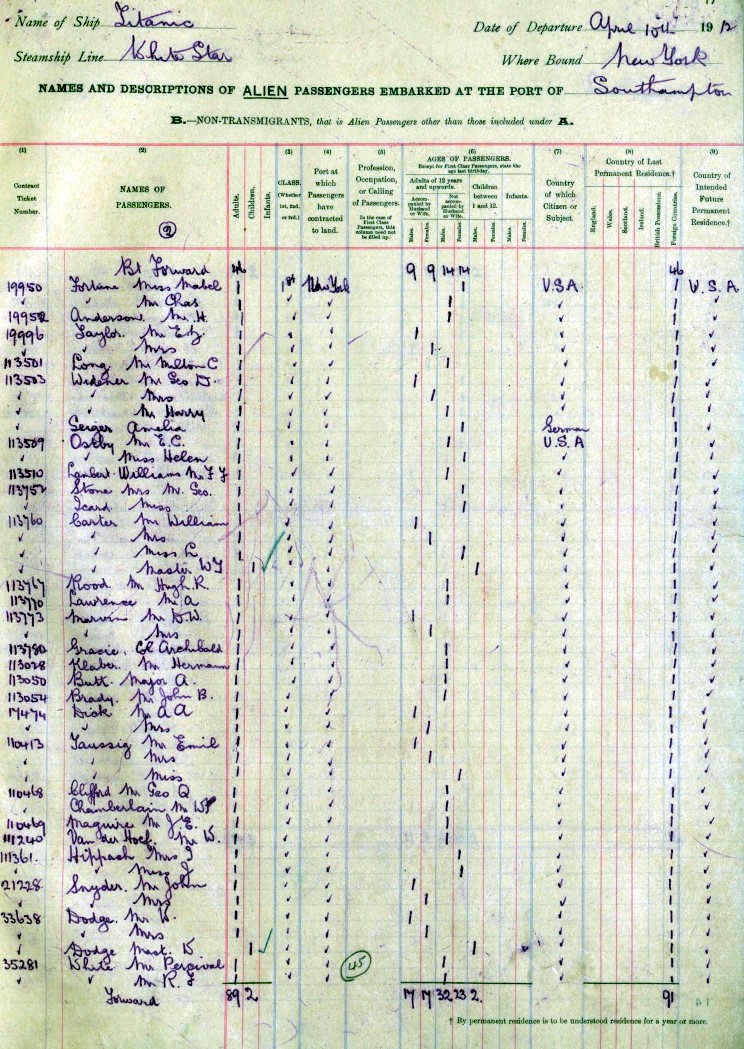 Name of Ship Titanic Date of Departure April 10th 1912
Steamship Line White Star Where Bound New York
NAMES AND DESCRIPTIONS OF ALIEN PASSENGERS EMBARKED AT THE PORT OF Southampton
B.—NON-TRANSMIGRANTS, that is Alien Passengers other than those included under A.
(1) (2) (3) (4) (5) (6) (7) (8) (9)
Contract Ticket Number.
NAMES OF PASSENGERS.
2
Adults.
Children.
Infants.
CLASS. (Whether 1st, 2nd, or 3rd.)
Port at which Passengers have contracted to land.
Profession, Occupation, or Calling of Passengers.
In the case of First Class Passengers, this column need not be filled up.
AGES OF PASSENGERS.
Except for First Class Passengers, state the age last birthday.
Adults of 12 years and upwards.
Children between 1 and 12.
Infants.
Accompanied by Husband or Wife.
Not accompanied by Husband or Wife.
Males. Females. Males. Females. Males. Females. Males. Females.
Country of which Citizen or Subject.
Country of Last Permanent Residence.†
England. Wales. Scotland. Ireland. British Possessions. Foreign Countries.
Country of Intended Future Permanent Residence.†
Bt Forward 46 9 9 14 14 46
19950 Fortune Miss Mabel 1 1st New York 1 U.S.A. 1 U.S.A.
" Mr Chas 1 1 1
19952 Anderson. Mr. H. 1 1 1
19996 Taylor. Mr E.Z. 1 1 1
" Mrs 1 1 1
113501 Long Mr Milton C 1 1 1
113503 Widener Mr Geo D. 1 1 1
" Mrs 1 1 1
" Mr Harry 1 1 1
Geiger Amelia 1 1 German 1
113509 Ostby Mr E.C. 1 1 U.S.A 1
" Miss Helen 1 1 1
113510 Lambert-Williams Mr F F 1 1 1
113752 Stone Mrs M. Geo. 1 1 1
Icard. Miss 1 1 1
113760 Carter Mr William 1 1 1
" Mrs 1 1 1
" Miss L 1 1 1
" Master WT 1 1 1
113767 Hood. Mr Hugh.R. 1 1 1
113770 Lawrence Mr A 1 1 1
113773 Marvin Mr D.W. 1 1 1
" Mrs 1 1 1
113780 Gracie. Col Archibald 1 1 1
113028 Klaber. Mr Hermann 1 1 1
113050 Butt. Major A. 1 1 1
113054 Brady. Mr John B. 1 1 1
17474 Dick Mr A A 1 1 1
" Mrs 1 1 1
110413 Taussig Mr Emil 1 1 1
" Mrs 1 1 1
" Miss 1 1 1
110468 Clifford Mr Geo Q 1 1 1
Chamberlain Mr W 1 1 1
110469 Maguire Mr J.E. 1 1 1
111240 Van der Hoef. Mr W. 1 1 1
111361. Hippach Mrs I 1 1 1
" Miss J 1 1 1
21228 Snyder. Mr John 1 1 1
" Mrs 1 1 1
33638 Dodge. Mr W. 1 1 1
" Mrs 1 1 1
Dodge Mast. W 1 1 1
35281 White Mr Percival 1 1 1
" Mr R. F 1 1 1
45
Forward 89 2 17 17 32 23 2. 91
† By permanent residence is to be understood residence for a year or more.